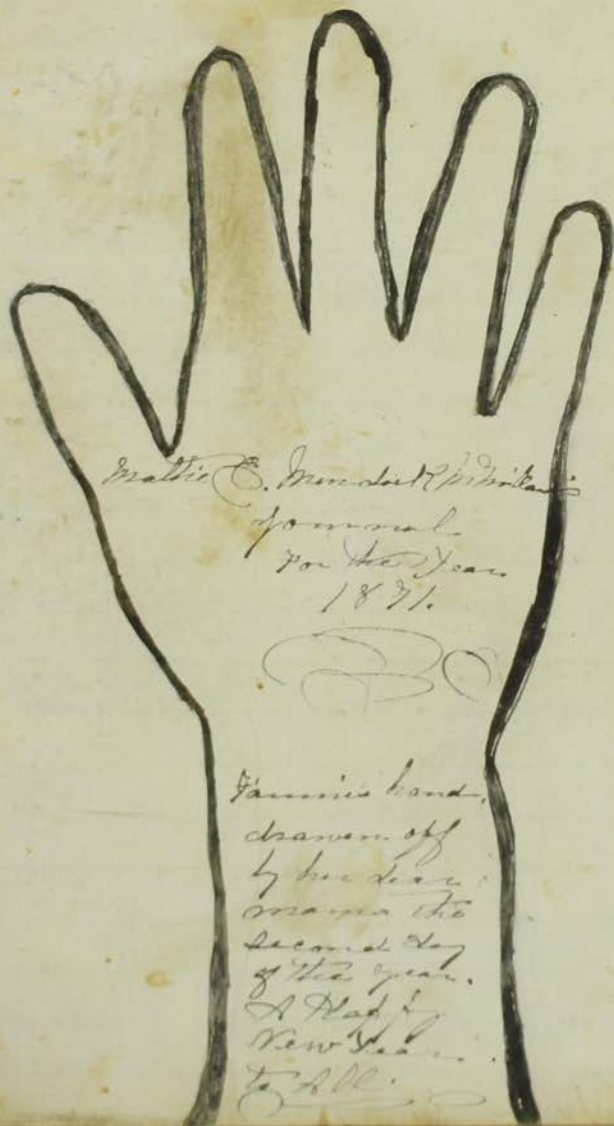 Mattie C.
Journal
For the Year
1871.
Fannie's hand,
drawn off
by her dear
mama the
second day
of the year.
A Happy
New Year
to All.